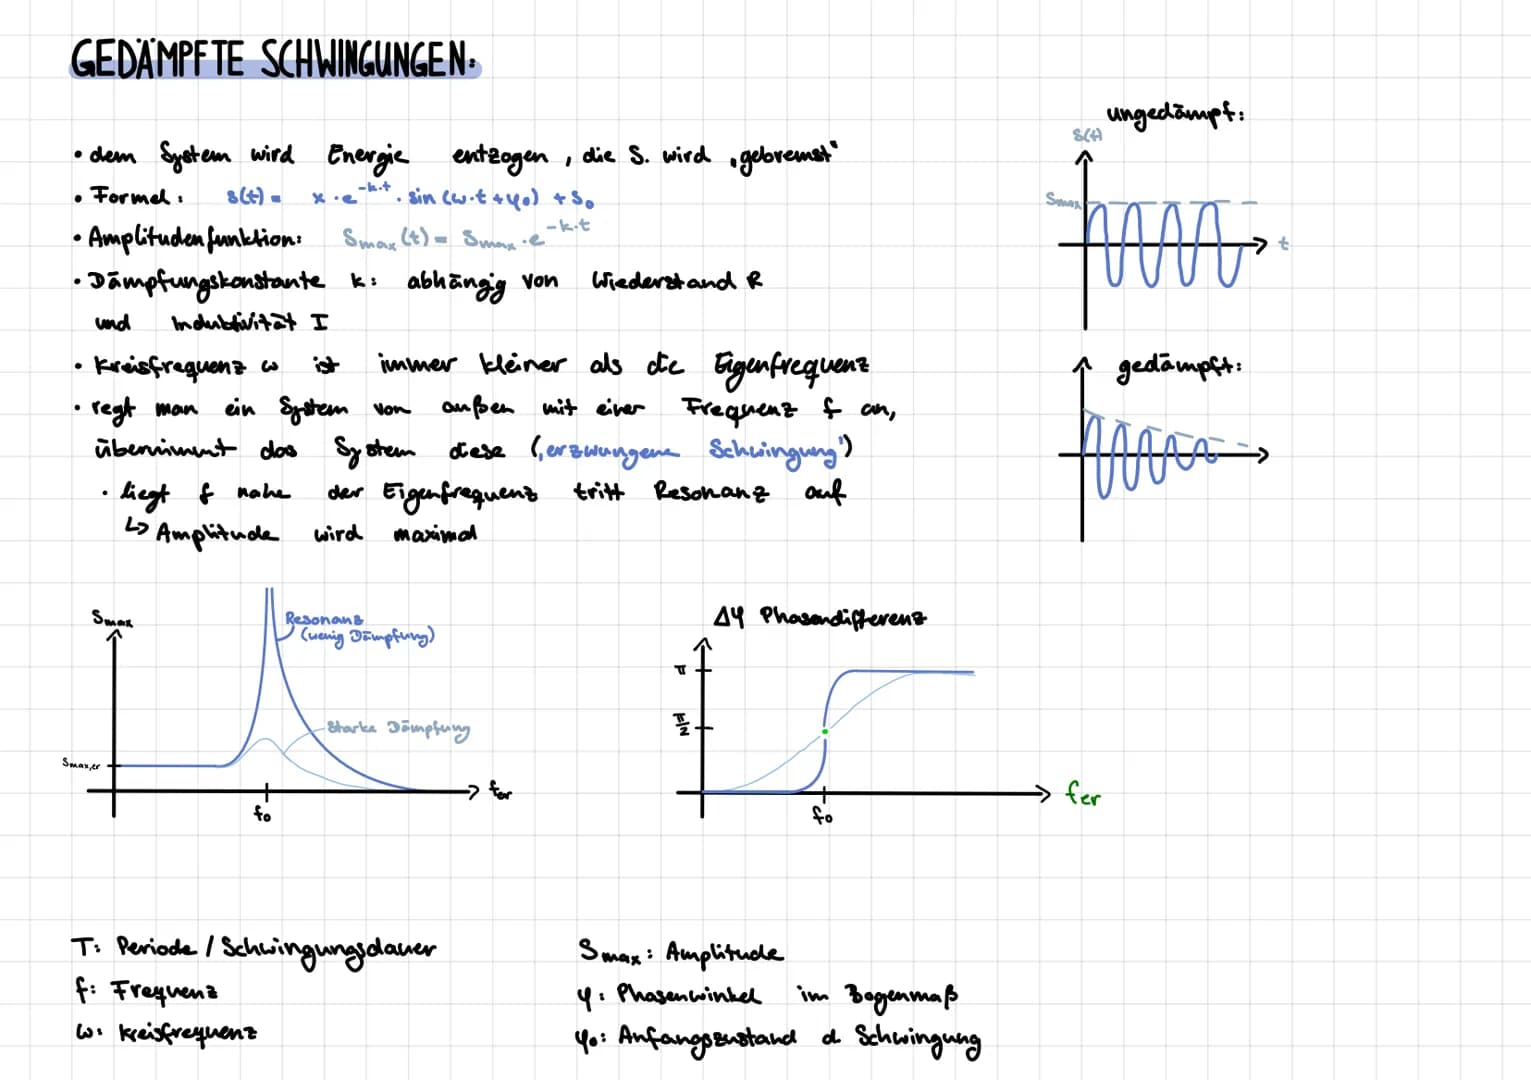 GEDÄMPFTE SCHWINGUNGEN:
• dem System wird Energie entzogen, die S. wird „gebremst"
• Formel: s(t) = x · e^-k·t · sin (ω·t + φ₀) + s₀
• Amplitudenfunktion: Smax (t) = Smax · e^-k·t
• Dämpfungskonstante k: abhängig von Wiederstand R
und Induktivität I
• Kreisfrequenz ω ist immer kleiner als die Eigenfrequenz
• regt man ein System von außen mit einer Frequenz f an,
übernimmt das System diese („erzwungene Schwingung")
• liegt f nahe der Eigenfrequenz tritt Resonanz auf
↳ Amplitude wird maximal
ungedämpft:
s(t)
Smax
t
gedämpft:
Smax
Resonanz
(wenig Dämpfung)
Starke Dämpfung
Smax,er
fer
f₀
Δφ Phasendifferenz
π
π/2
fer
f₀
T: Periode / Schwingungsdauer
f: Frequenz
ω: Kreisfrequenz
Smax: Amplitude
φ: Phasenwinkel im Bogenmaß
φ₀: Anfangszustand d. Schwingung